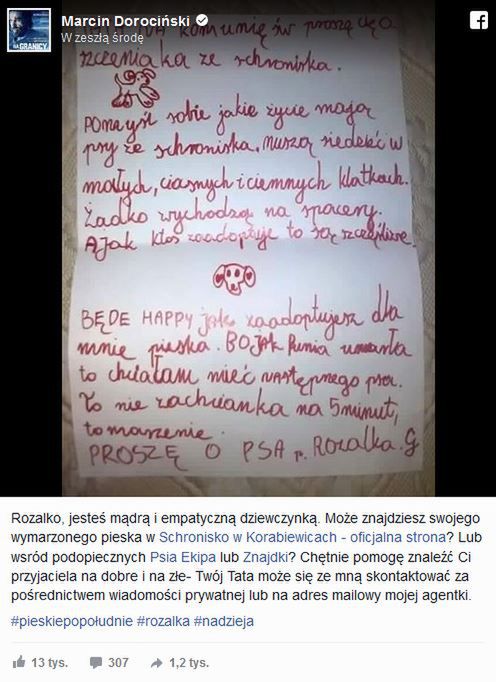 Marcin Dorociński
W zeszłą środę
NA GRANICY
KOMUNIĘ ŚW proszę cię o
szczeniaka ze schroniska.
POMYŚL sobie jakie życie mają
psy ze schroniska, muszą siedzieć w
małych, ciasnych i ciemnych klatkach.
Żadko wychodzą na spacery.
A JAK ktoś zaadoptuje to są szczęśliwe.
BĘDE HAPPY jak zaadoptujesz dla
mnie pieska. BO JAK Punia umarła
to chciałam mieć następnego psa.
To nie zachcianka na 5 minut,
to marzenie.
PROSZĘ O PSA p. Rozalka. G
Rozalko, jesteś mądrą i empatyczną dziewczynką. Może znajdziesz swojego
wymarzonego pieska w Schronisko w Korabiewicach - oficjalna strona? Lub
wsród podopiecznych Psia Ekipa lub Znajdki? Chętnie pomogę znaleźć Ci
przyjaciela na dobre i na złe- Twój Tata może się ze mną skontaktować za
pośrednictwem wiadomości prywatnej lub na adres mailowy mojej agentki.
#pieskiepopołudnie #rozalka #nadzieja
13 tys. 307 1,2 tys.